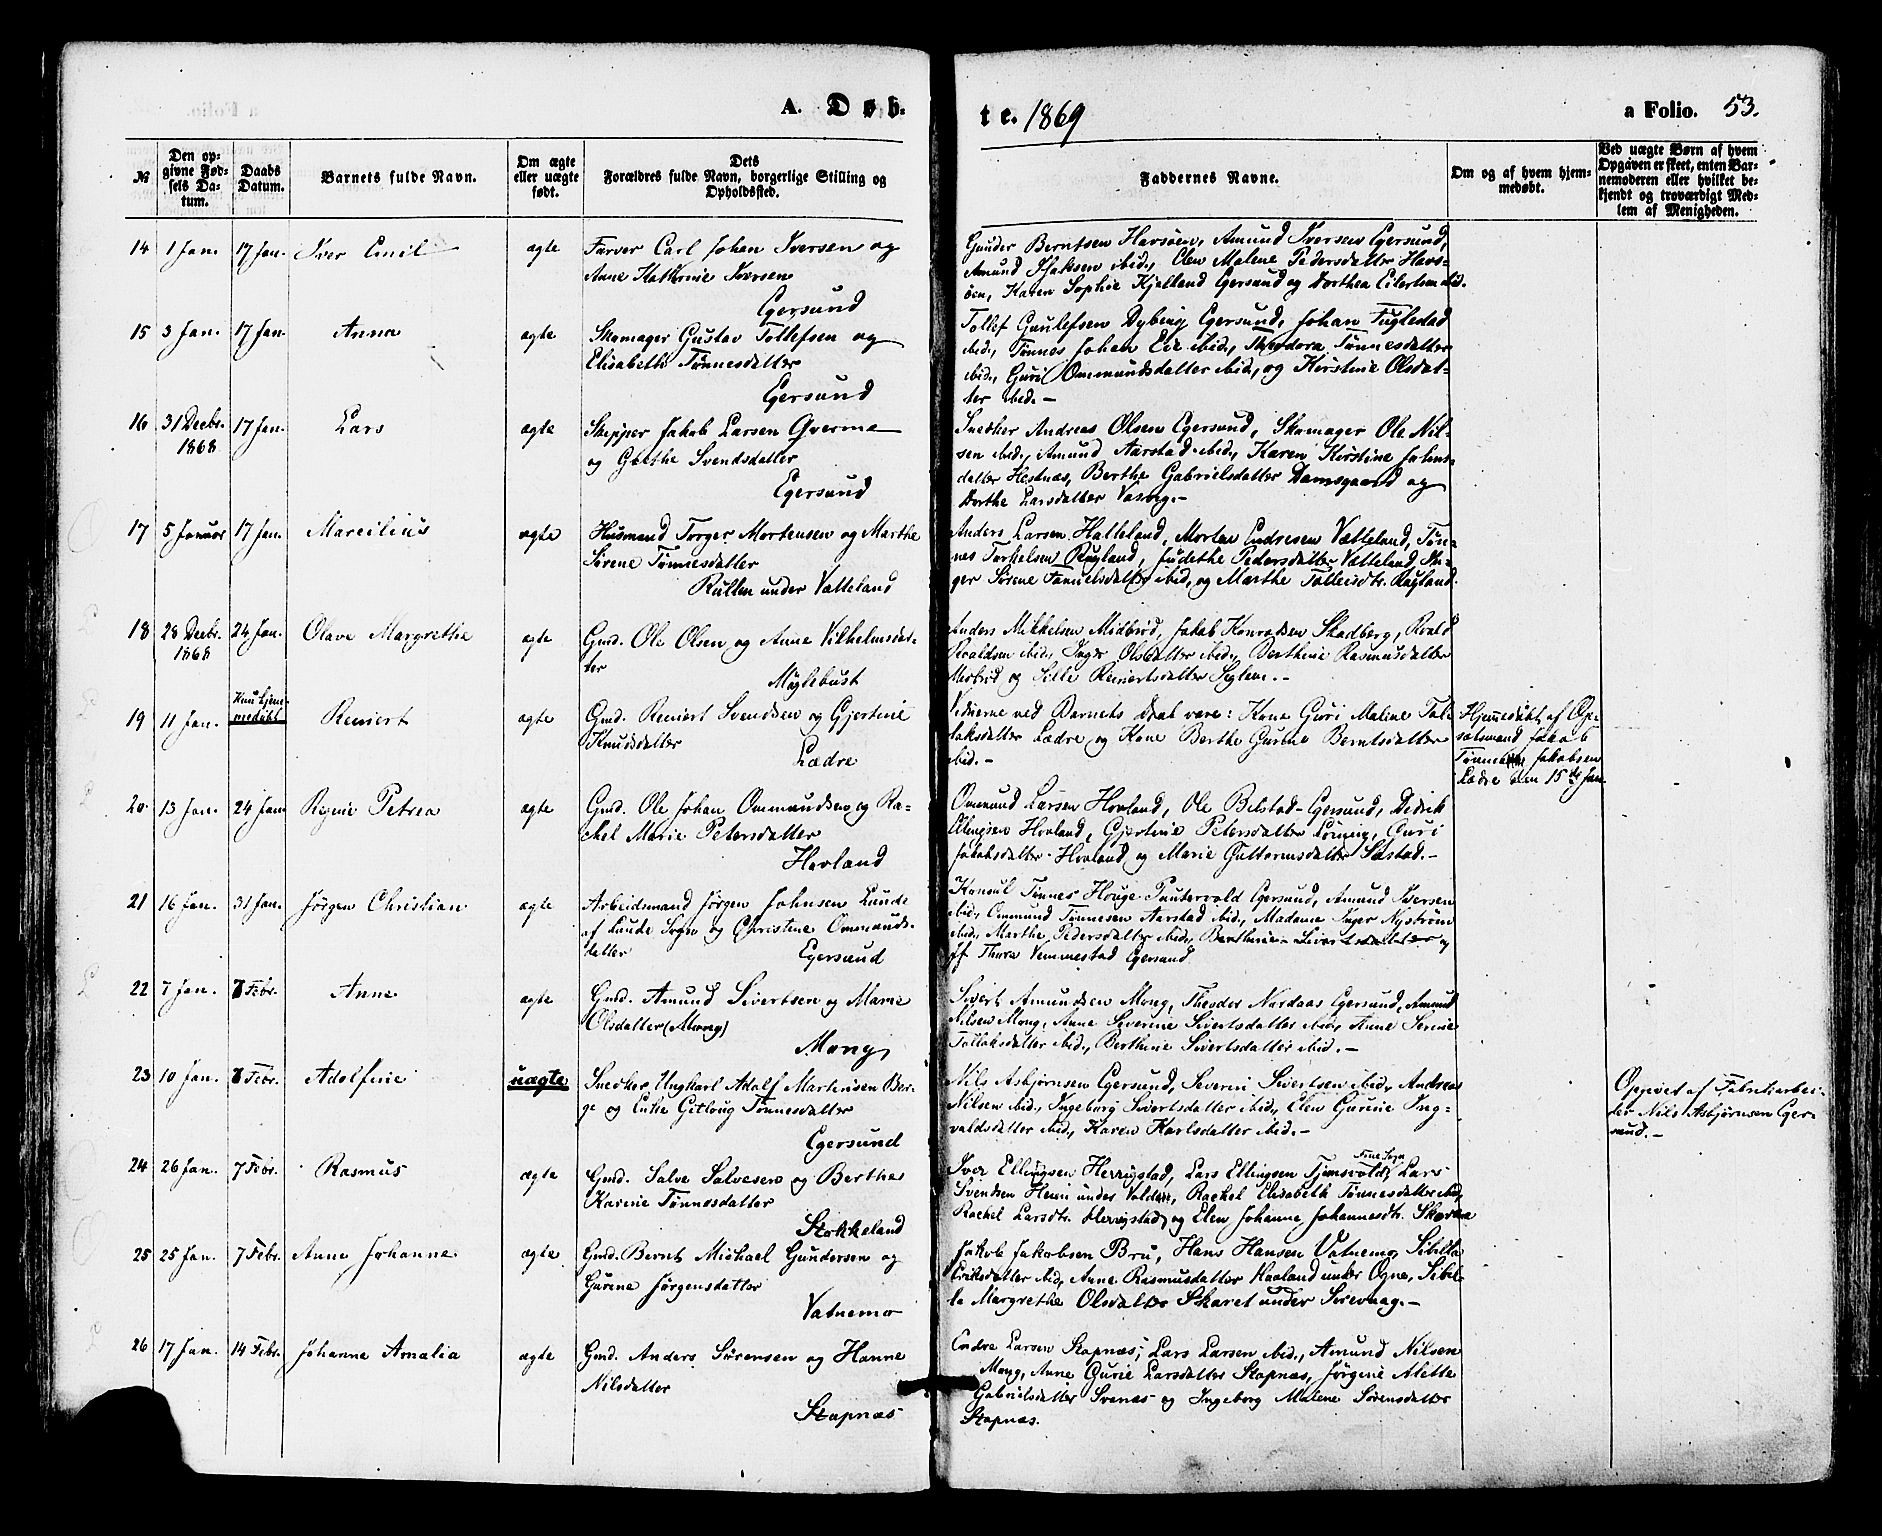 A. D ø b-
t e. 1869
a Folio. 53.
№
Den op-
givne Fød-
sels Da-
tum.
Daabs
Datum.
Barnets fulde Navn.
Om ægte
eller uægte
født.
Dets
Forældres fulde Navn, borgerlige Stilling og
Opholdssted.
Faddernes Navne.
Om og af hvem hjem-
medøbt.
Ved uægte Børn af hvem
Opgaven er skeet, enten Bar-
nemoderen eller hvilket be-
kjendt og troværdigt Med-
lem af Menigheden.
14 1 Jan. 17 Jan. Iver Emil ægte Farver Carl Johan Iversen og
Anne Kathrine Iversen
Egersund
Gunder Berntsen Havsøen, Amund Iversen Egersund,
Amund Isaksen ibid., Elen Malene Pedersdatter Havs-
øen, Karen Sophie Kjelland Egersund og Dorthea Eilertsen ibid.
15 3 Jan. 17 Jan. Anna ægte Skomager Gustav Tollefsen og
Elisabeth Tønnesdatter
Egersund
Tollef Gunlefsen Dybing Egersund, Johan Fuglestad
ibid., Tønnes Johan Eie ibid., Theodora Tønnesdatter
ibid., Guri Ommundsdatter ibid., og Kirstine Olsdat-
ter ibid.-
16 31 Decbr. 1868 17 Jan. Lars ægte Skipper Jakob Larsen Qverme
og Gjæthe Svendsdatter
Egersund
Snedker Andreas Olsen Egersund, Skomager Ole Nil-
sen ibid., Amund Aarstad ibid., Karen Kirstine Johns-
datter Hestnæs, Berthe Gabrielsdatter Damsgaard og
Dorthe Larsdatter Vasvig.-
17 5 Januar 17 Jan. Marcilius ægte Husmand Torger Mortensen og Marthe
Sørene Tønnesdatter
Rullen under Vatteland
Anders Larsen Halleland, Morten Endresen Vætteland, Tøn-
nes Torkelsen Rugland, Judethe Pedersdatter Vætteland, In-
ger Sørene Samuelsdatter ibid., og Marthe Tolleivsdtr. Rugland.
18 28 Decbr. 1868 24 Jan. Olave Margrethe ægte Gmd. Ole Olsen og Anne Vilhelmsdat-
ter
Myglebust
Anders Mikkelsen Midbrød, Jakob Konradsen Skadberg, Roald
Roaldsen ibid., Inger Olsdatter ibid., Berthine Rasmusdatter
Midbrød og Sille Reinertsdatter Seglem.-
19 11 Jan. Kun hjem-
medøbt Reinert ægte Gmd. Reinert Svendsen og Gjertine
Knudsdatter
Lædre
Vidnerne ved Barnets Daab vare: Kone Guri Maline Tol-
laksdatter Lædre og Kone Berthe Gurine Berntsdatter
ibid.-
Hjemmedøbt af Op-
sidsmand Jakob
Tønnes Jakobsen
Lædre den 15de Jan.
20. 13 Jan. 24 Jan. Regine Petrea ægte Gmd. Ole Johan Ommundsen og Ra-
chel Marie Petersdatter
Hovland
Ommund Larsen Hovland, Ole Bilstad Egersund, Didrik
Ellingsen Hovland, Gjertine Petersdatter Lønning, Guri
Jakobsdatter Hovland og Marie Guttormsdatter Sæstad.-
21 16 Jan. 31 Jan. Jørgen Christian ægte Arbeidsmand Jørgen Johnsen Lunde
af Lunde Sogn og Christine Ommunds-
datter Egersund
Konsul Tønnes Houge Puntervold Egersund, Amund Iversen
ibid., Ommund Tønnesen Aarstad ibid., Madame Inger Nystrøm
ibid., Marthe Pedersdatter ibid., Berthine Sivertsdatter og
Jf. Thora Vemmestad Egersund
22 7 Jan. 7 Febr. Anne ægte Gmd. Amund Sivertsen og Marie
Olsdatter (Mong)
Mong
Sivert Amundsen Mong, Theodor Nordaas Egersund, Amund
Nilsen Mong, Anne Severine Sivertsdatter ibid., Anne Serine
Tollaksdatter ibid., Berthine Sivertsdatter ibid.-
23 10 Jan. 7 Febr. Adolfine uægte Snedker Ungkarl Adolf Martinsen Ber-
ge og Enke Gitloug Tønnesdatter
Egersund
Nils Asbjørnsen Egersund, Severin Sivertsen ibid., Andreas
Nilsen ibid., Ingeborg Sivertsdatter ibid., Elen Gurine Ing-
valdsdatter ibid., Karen Karlsdatter ibid.-
Opgivet af Fabrikarbei-
der Nils Asbjørnsen Eger-
sund.-
24 26 Jan. 7 Febr. Rasmus ægte Gmd. Salve Salvesen og Berthe
Karine Tønnesdatter
Stokkeland
Iver Ellingsen Herrigstad, Lars Ellingsen Tjemsvold, Lars
Svendsen Heim under Volden, Rachel Elisabeth Tønnesdatter ibid.,
Rachel Larsdtr. Herrigstad og Elen Johanne Johannesdtr. Skorda
25 25 Jan. 7 Febr. Anne Johanne ægte Gmd. Bernt Michael Gundersen og
Gurine Jørgensdatter
Vatnemo
Jakob Jakobsen Bru, Hans Hansen Vatnemo, Sibilla
Eriksdatter ibid., Anne Rasmusdatter Hovland under Ogne, Sibil-
la Margrethe Olsdatter Skaret under Sirevaag.-
26 17 Jan. 14 Febr. Johanne Amalia ægte Gmd. Anders Sørensen og Hanne
Nilsdatter
Stapnæs
Endre Larsen Stapnæs, Lars Larsen ibid., Amund Nilsen
Mong, Anne Gurie Larsdatter Stapnæs, Jørgine Alette
Gabrielsdatter Svanæs og Ingeborg Malene Sørensdatter
Stapnæs.